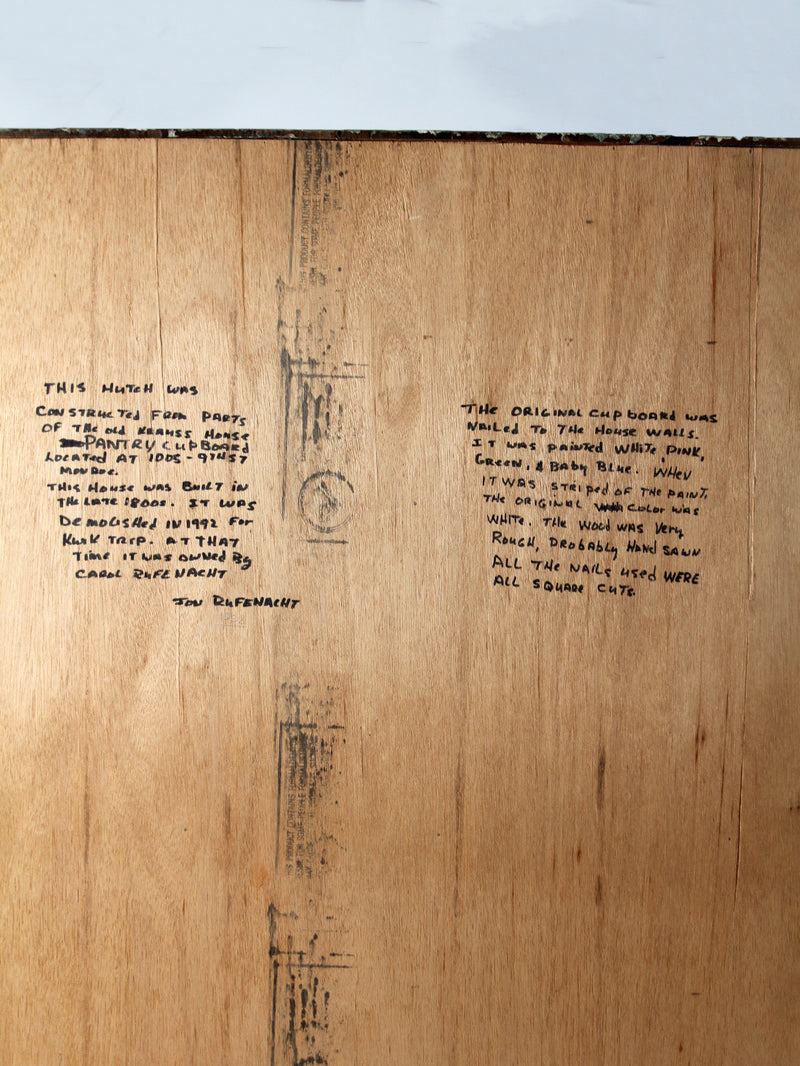 THIS HUTCH WAS
CONSTRUCTED FROM PARTS
OF THE OLD KRAUSS HOUSE
PANTRY CUPBOARD
LOCATED AT 1005 - 9TH ST
MONROE.
THIS HOUSE WAS BUILT IN
THE LATE 1800s. IT WAS
DEMOLISHED IN 1992 FOR
KWIK TRIP. AT THAT
TIME IT WAS OWNED By
CAROL RUFENACHT
JON RUFENACHT
THE ORIGINAL CUPBOARD WAS
NAILED TO THE HOUSE WALLS.
IT WAS PAINTED WHITE, PINK,
GREEN, & BABY BLUE. WHEN
IT WAS STRIPED OF THE PAINT,
THE ORIGINAL COLOR WAS
WHITE. THE WOOD WAS VERY
ROUGH, PROBABLY HAND SAWN
ALL THE NAILS USED WERE
ALL SQUARE CUTS.
THIS PRODUCT CONTAINS FORMALDEHYDE
FOR SOME PEOPLE FORMALDEHYDE
THIS PRODUCT CONTAINS FORMALDEHYDE
FOR SOME PEOPLE FORMALDEHYDE